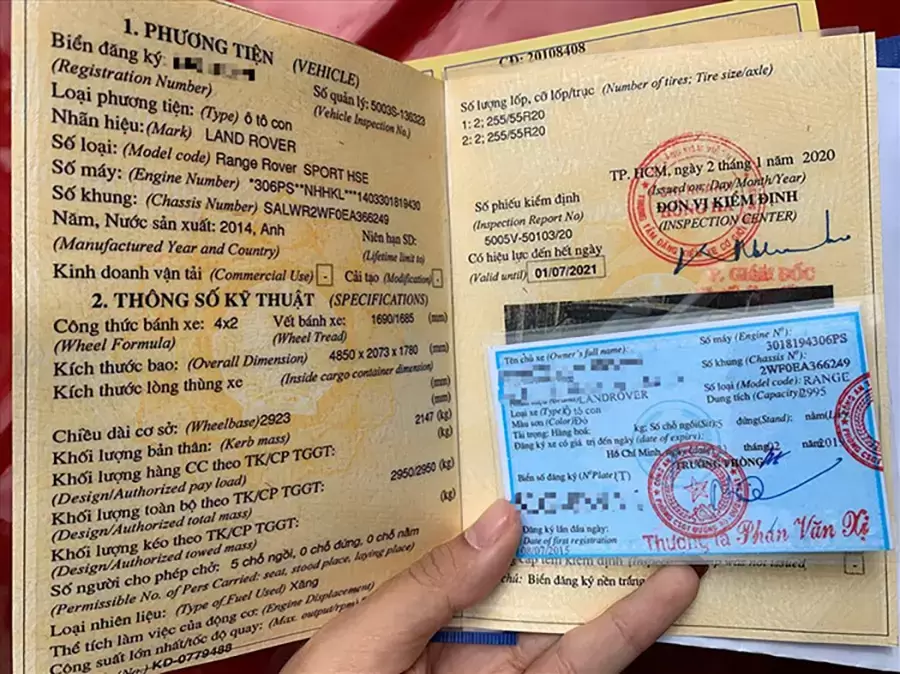 1. PHƯƠNG TIỆN (VEHICLE)
Biển đăng ký:
(Registration Number)
Số quản lý: 5003S-136323
(Vehicle Inspection No.)
Loại phương tiện: (Type) ô tô con
Nhãn hiệu: (Mark) LAND ROVER
Số loại: (Model code) Range Rover SPORT HSE
Số máy: (Engine Number) *306PS**NHHKL***1403301819430
Số khung: (Chassis Number) SALWR2WF0EA366249
Năm, Nước sản xuất: 2014, Anh
(Manufactured Year and Country)
Niên hạn SD:
(Lifetime limit to)
Kinh doanh vận tải (Commercial Use) - Cải tạo (Modification) -
2. THÔNG SỐ KỸ THUẬT (SPECIFICATIONS)
Công thức bánh xe: 4x2
(Wheel Formula)
Vết bánh xe: 1690/1685 (mm)
(Wheel Tread)
Kích thước bao: (Overall Dimension) 4850 x 2073 x 1780 (mm)
Kích thước lòng thùng xe (Inside cargo container dimension)
(mm)
Chiều dài cơ sở: (Wheelbase) 2923 (mm)
Khối lượng bản thân: (Kerb mass) 2147 (kg)
Khối lượng hàng CC theo TK/CP TGGT: (kg)
(Design/Authorized pay load)
Khối lượng toàn bộ theo TK/CP TGGT: 2950/2950 (kg)
(Design/Authorized total mass)
Khối lượng kéo theo TK/CP TGGT: (kg)
(Design/Authorized towed mass)
Số người cho phép chở: 5 chỗ ngồi, 0 chỗ đứng, 0 chỗ nằm
(Permissible No. of Pers Carried: seat, stood place, laying place)
Loại nhiên liệu: (Type of Fuel Used) Xăng
Thể tích làm việc của động cơ: (Engine Displacement)
Công suất lớn nhất/tốc độ quay: (Max. output/rpm)
KD-0779488
CD: 20108408
Số lượng lốp, cỡ lốp/trục (Number of tires; Tire size/axle)
1: 2; 255/55R20
2: 2; 255/55R20
TP. HCM, ngày 2 tháng 1 năm 2020
(Issued on: Day/Month/Year)
Số phiếu kiểm định
(Inspection Report No)
5005V-50103/20
ĐƠN VỊ KIỂM ĐỊNH
(INSPECTION CENTER)
Có hiệu lực đến hết ngày
(Valid until) 01/07/2021
P. GIÁM ĐỐC
Tên chủ xe (Owner's full name):
Số máy (Engine N°):
3018194306PS
Số khung (Chassis N°):
2WF0EA366249
LANDROVER
Số loại (Model code): RANGE
Loại xe (Type)
con
Dung tích (Capacity) 2995
Màu sơn (Color) Đỏ
Tải trọng: Hàng hoá: kg; Số chỗ ngồi(Sit): 5 đứng(Stand):
Đăng ký xe có giá trị đến ngày (date of expiry):
Hồ Chí Minh,
TRƯỞNG PHÒNG
Biển số đăng ký (N° Plate)
Đăng ký lần đầu ngày:
Date of first registration
08/07/2015
Thượng tá Phan Văn
was not issued) -
chú: Biển đăng ký nền trắng